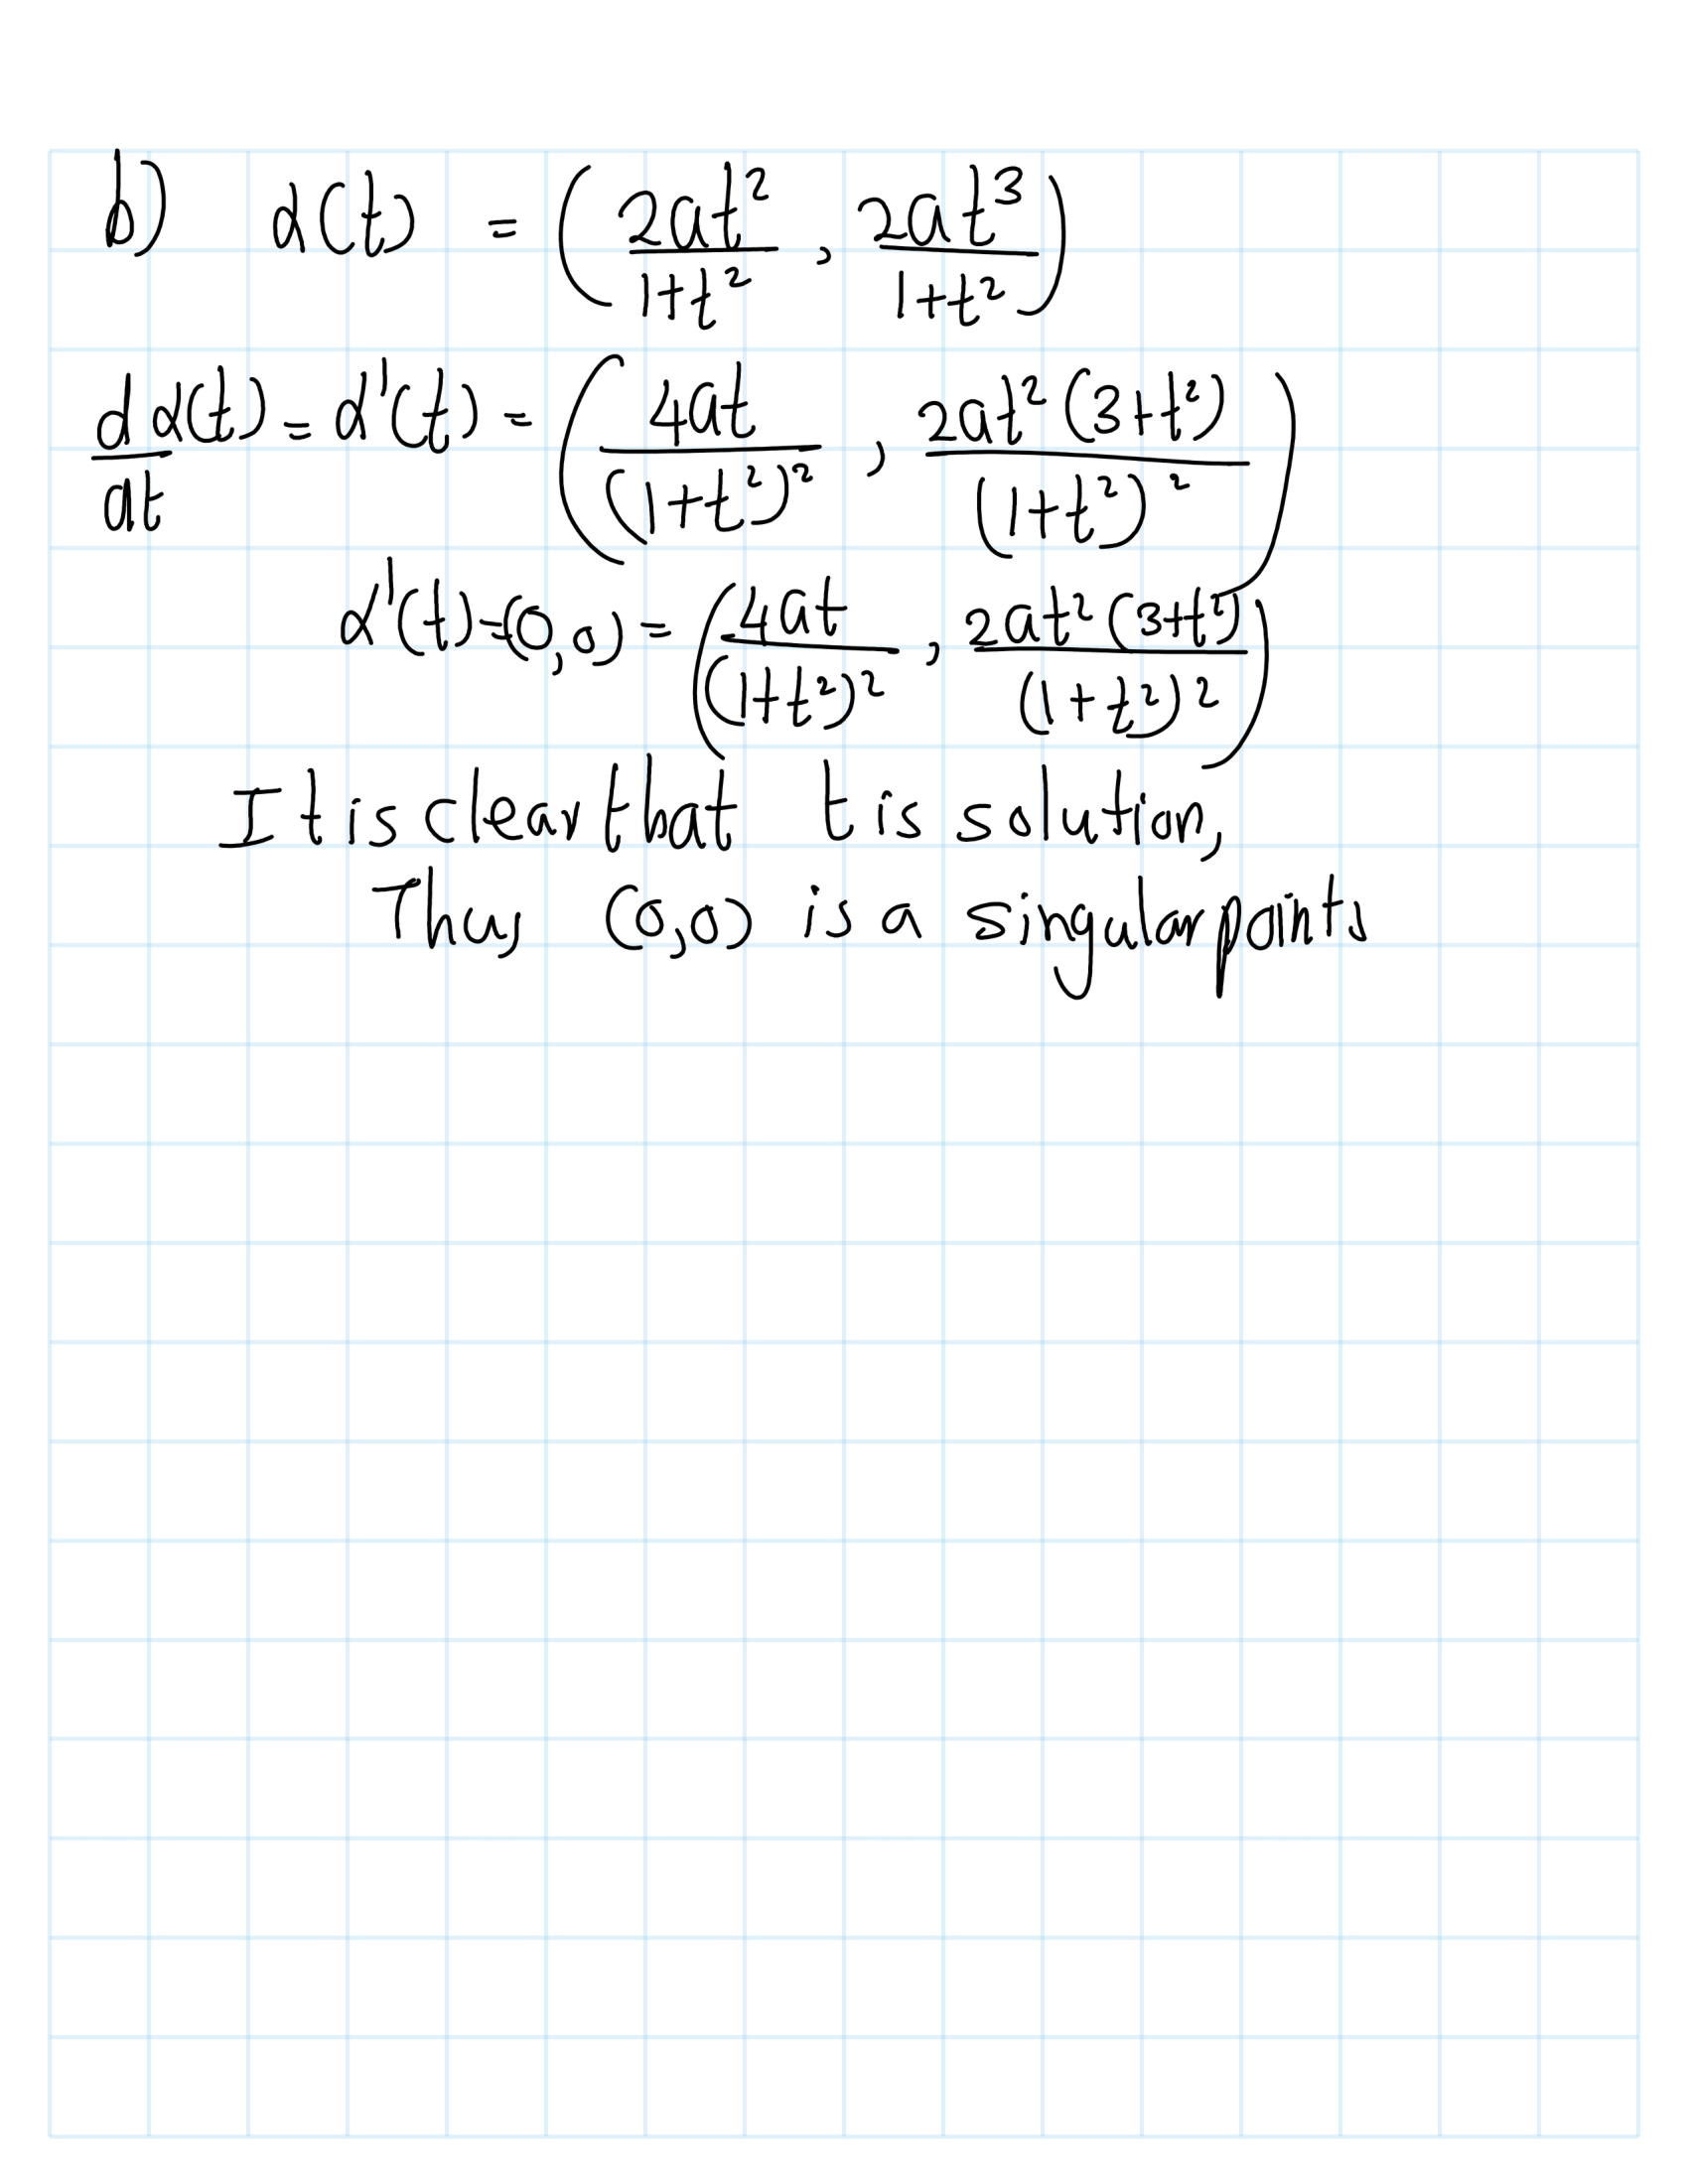 b) α(t) = (2at²/(1+t²), 2at³/(1+t²))
d/dt α(t) = α'(t) = (4at/(1+t²)², 2at²(3+t²)/(1+t²)²)
α'(t) = (0,0) = (4at/(1+t²)², 2at²(3+t²)/(1+t²)²)
It is clear that t is solution,
Thus (0,0) is a singular points